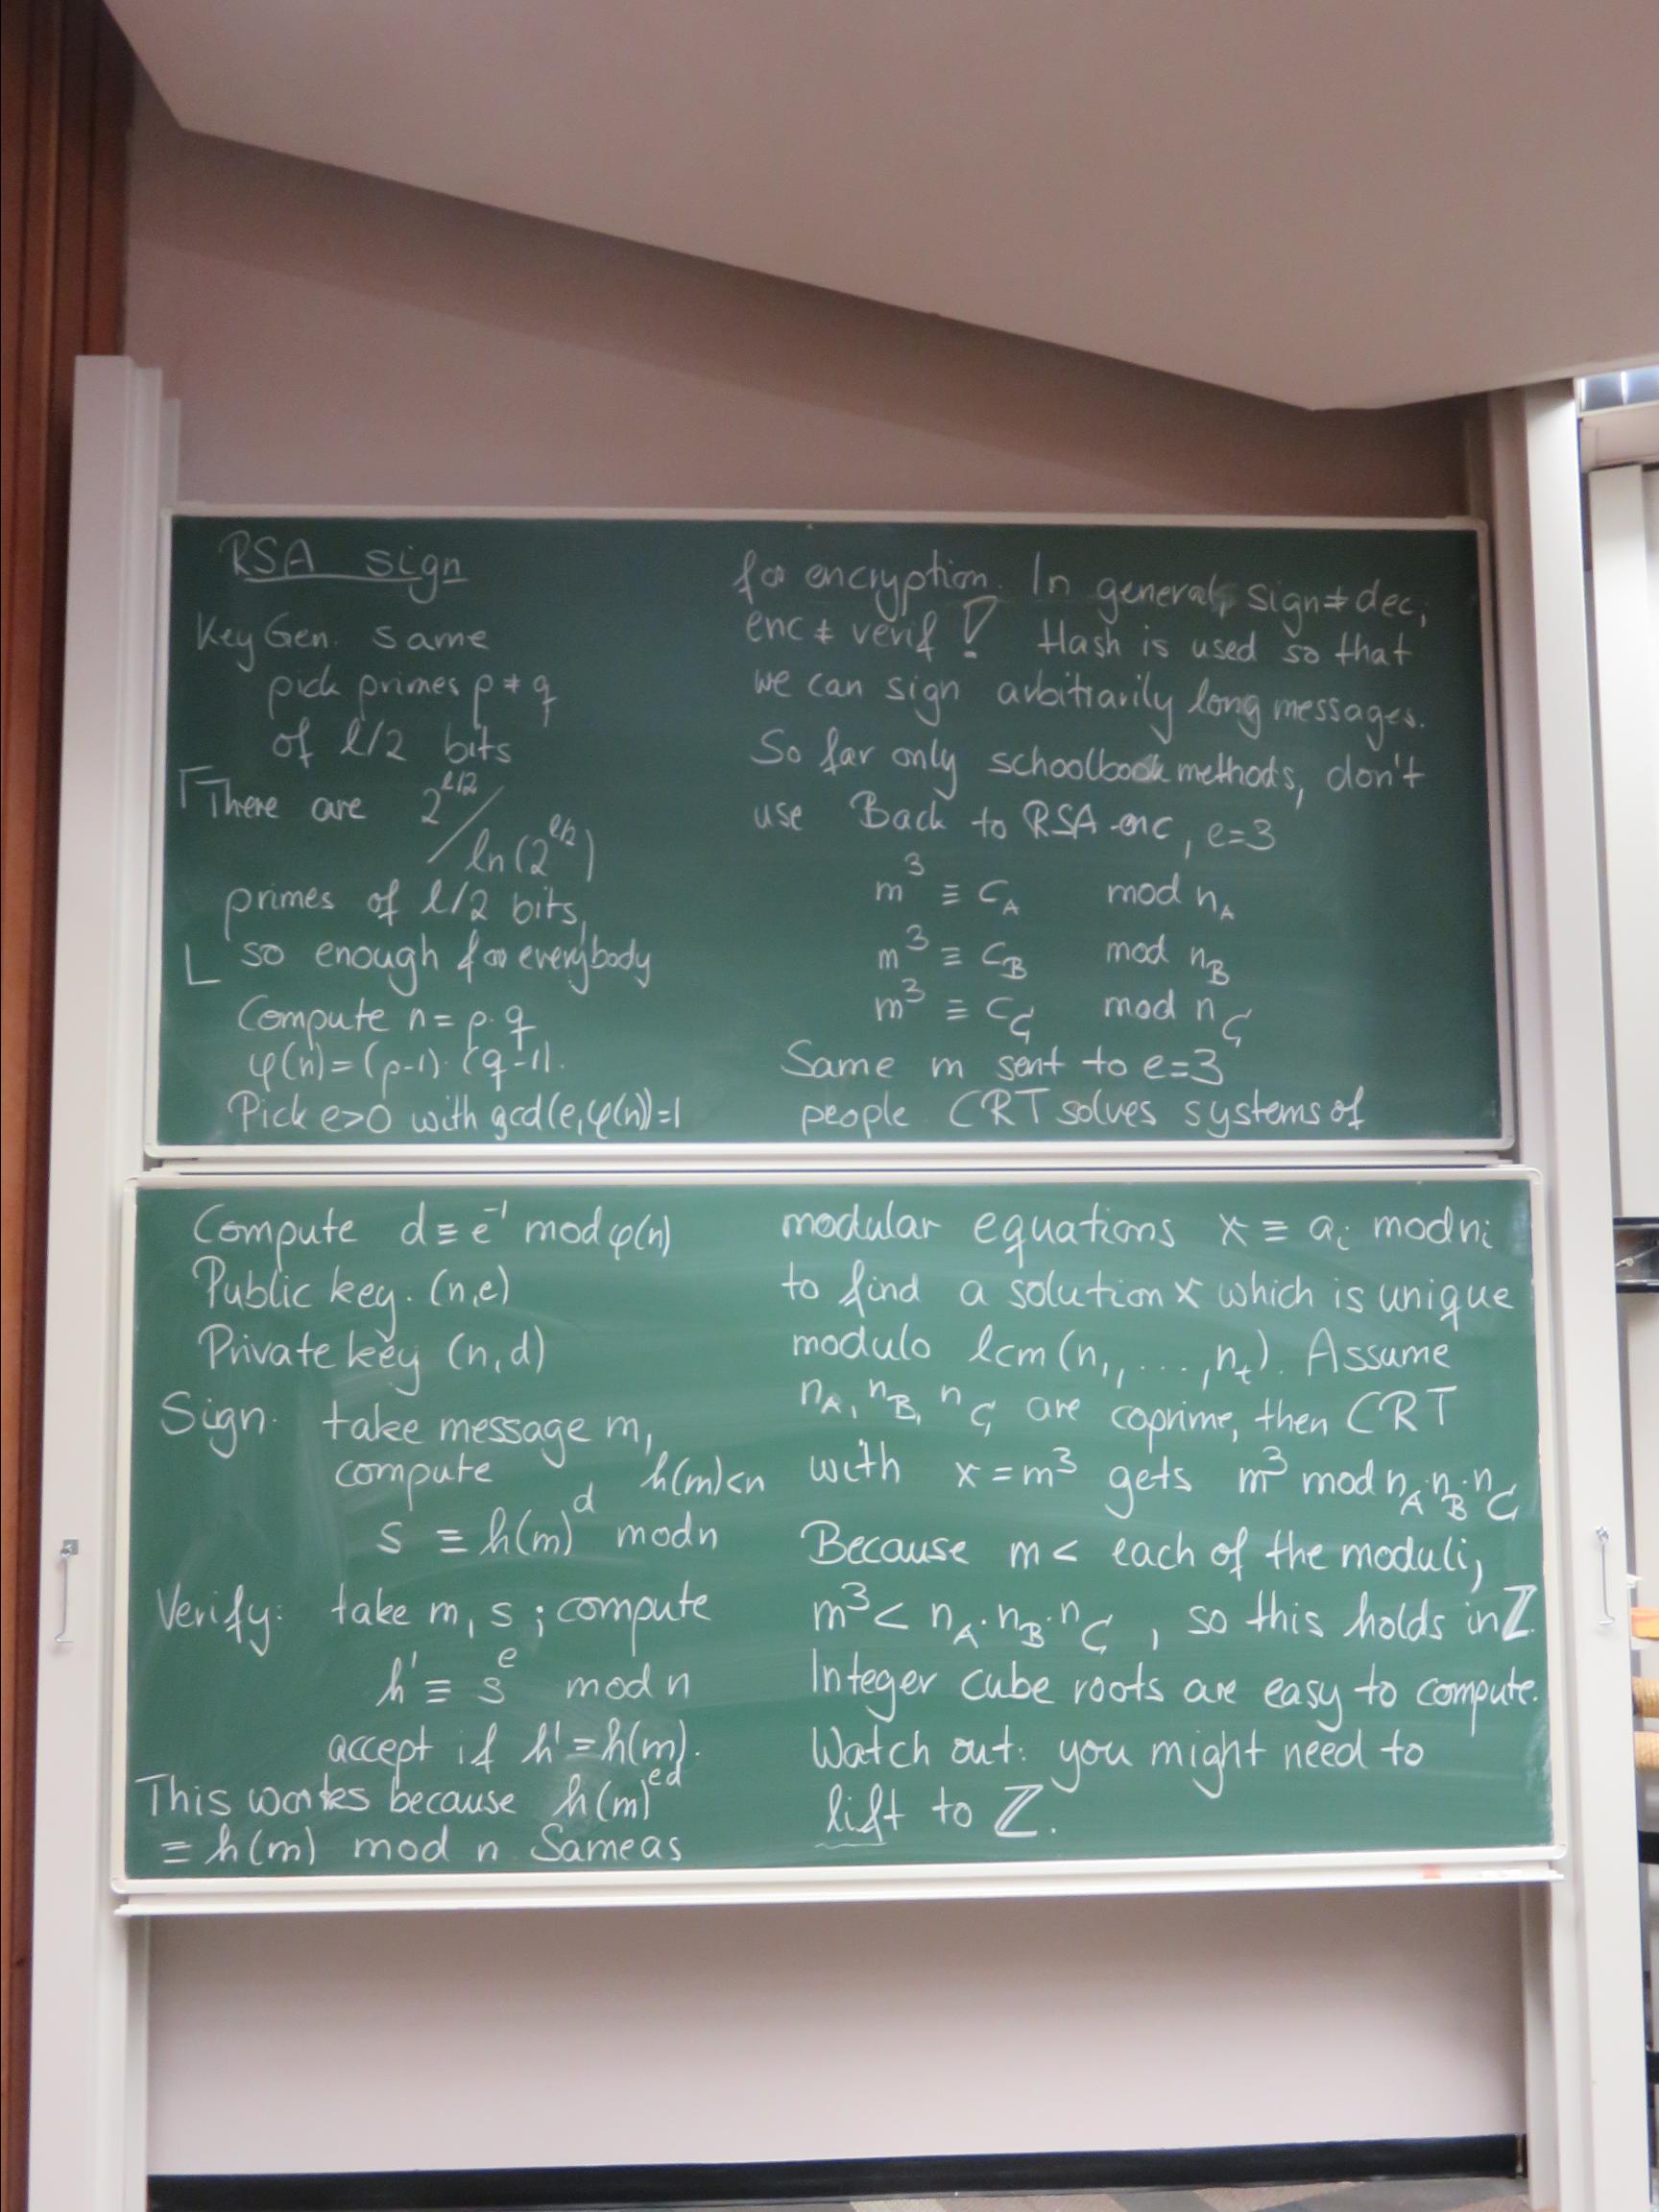 RSA sign
KeyGen. same
pick primes p ≠ q
of l/2 bits
⌈There are 2^{l/2} / ln(2^{l/2})
primes of l/2 bits,
⌊ so enough for everybody
Compute n = p·q
φ(n) = (p-1)·(q-1).
Pick e>0 with gcd(e,φ(n))=1
Compute d ≡ e^{-1} mod φ(n)
Public key. (n,e)
Private key (n,d)
Sign: take message m,
compute h(m)<n
s ≡ h(m)^d mod n
Verify: take m, s ; compute
h' ≡ s^e mod n
accept if h' = h(m).
This works because h(m)^{ed}
≡ h(m) mod n Same as
for encryption. In general, sign ≠ dec,
enc ≠ verif ! Hash is used so that
we can sign arbitrarily long messages.
So far only schoolbook methods, don't
use Back to RSA-enc, e=3
m^3 ≡ c_A mod n_A
m^3 ≡ c_B mod n_B
m^3 ≡ c_C mod n_C
Same m sent to e=3
people. CRT solves systems of
modular equations x ≡ a_i mod n_i
to find a solution x which is unique
modulo lcm(n_1, ..., n_t). Assume
n_A, n_B, n_C are coprime, then CRT
with x = m^3 gets m^3 mod n_A·n_B·n_C
Because m < each of the moduli,
m^3 < n_A·n_B·n_C , so this holds in ℤ.
Integer cube roots are easy to compute.
Watch out: you might need to
lift to ℤ.